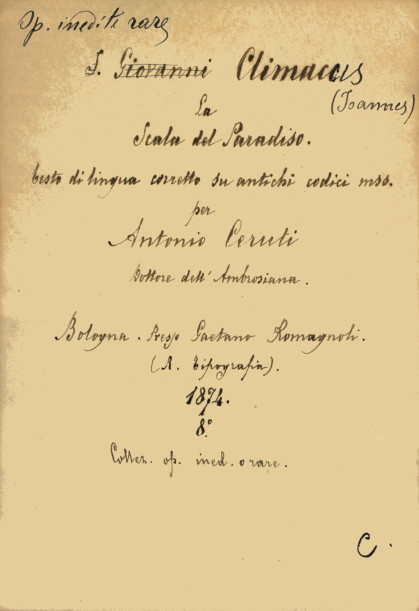 Op. inedite rare
S. Giovanni Climacus
(Joannes)
La
Scala del Paradiso.
testo di lingua corretto su antichi codici mss.
per
Antonio Ceruti
Dottore dell'Ambrosiana.
Bologna. Presso Gaetano Romagnoli.
(R. Tipografia).
1874.
8.º
Collez. op. ined. o rare.
C.